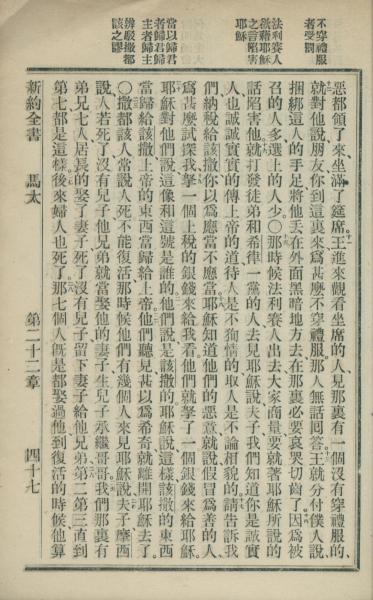 不穿禮服
者受罰
法利賽人
欲藉耶穌
之言陷害
耶穌
當以歸君
者歸君歸
主者歸主
辨駁撒都
該之謬
惡都領了來坐滿了筵席王進來觀看坐席的人見那裏有一個沒有穿禮服的、
就對他說朋友你到這裏來爲甚麼不穿禮服那人無話囘答王就分付僕人說、
捆綁這人的手足將他丟在外面黑暗地方去在那裏必要哀哭切齒了因爲被
召的人多選上的人少〇那時候法利賽人出去大家商量要就著耶穌所說的
話陷害他就打發徒弟和希律一黨的人去見耶穌說夫子我們知道你是誠實
人也誠誠實實的傳上帝的道待人是不徇情的取人是不論相貌的請告訴我
們納稅給該撒你以爲應當不應當耶穌知道他們的惡意就說假冒爲善的人、
爲甚麼試探我拏一個上稅的銀錢來給我看他們就拏了一個銀錢來給耶穌
耶穌對他們說這像和這號是誰的他們說是該撒的耶穌說這樣該撒的東西
當歸給該撒上帝的東西當歸給上帝他們聽見甚以爲希奇就離開耶穌去了。
〇撒都該人常說人死不能復活那時候他們有幾個人來見耶穌說夫子摩西
說人若死了沒有兒子他兄弟就當娶他的妻子生兒子承繼哥哥我們那裏有
弟兄七人居長的娶了妻子死了沒有兒子留下妻子給他兄弟第二第三直到
第七都是這樣後來婦人也死了那七個人旣是都娶過他到復活的時候他算
新約全書 馬太 第二十二章 四十七